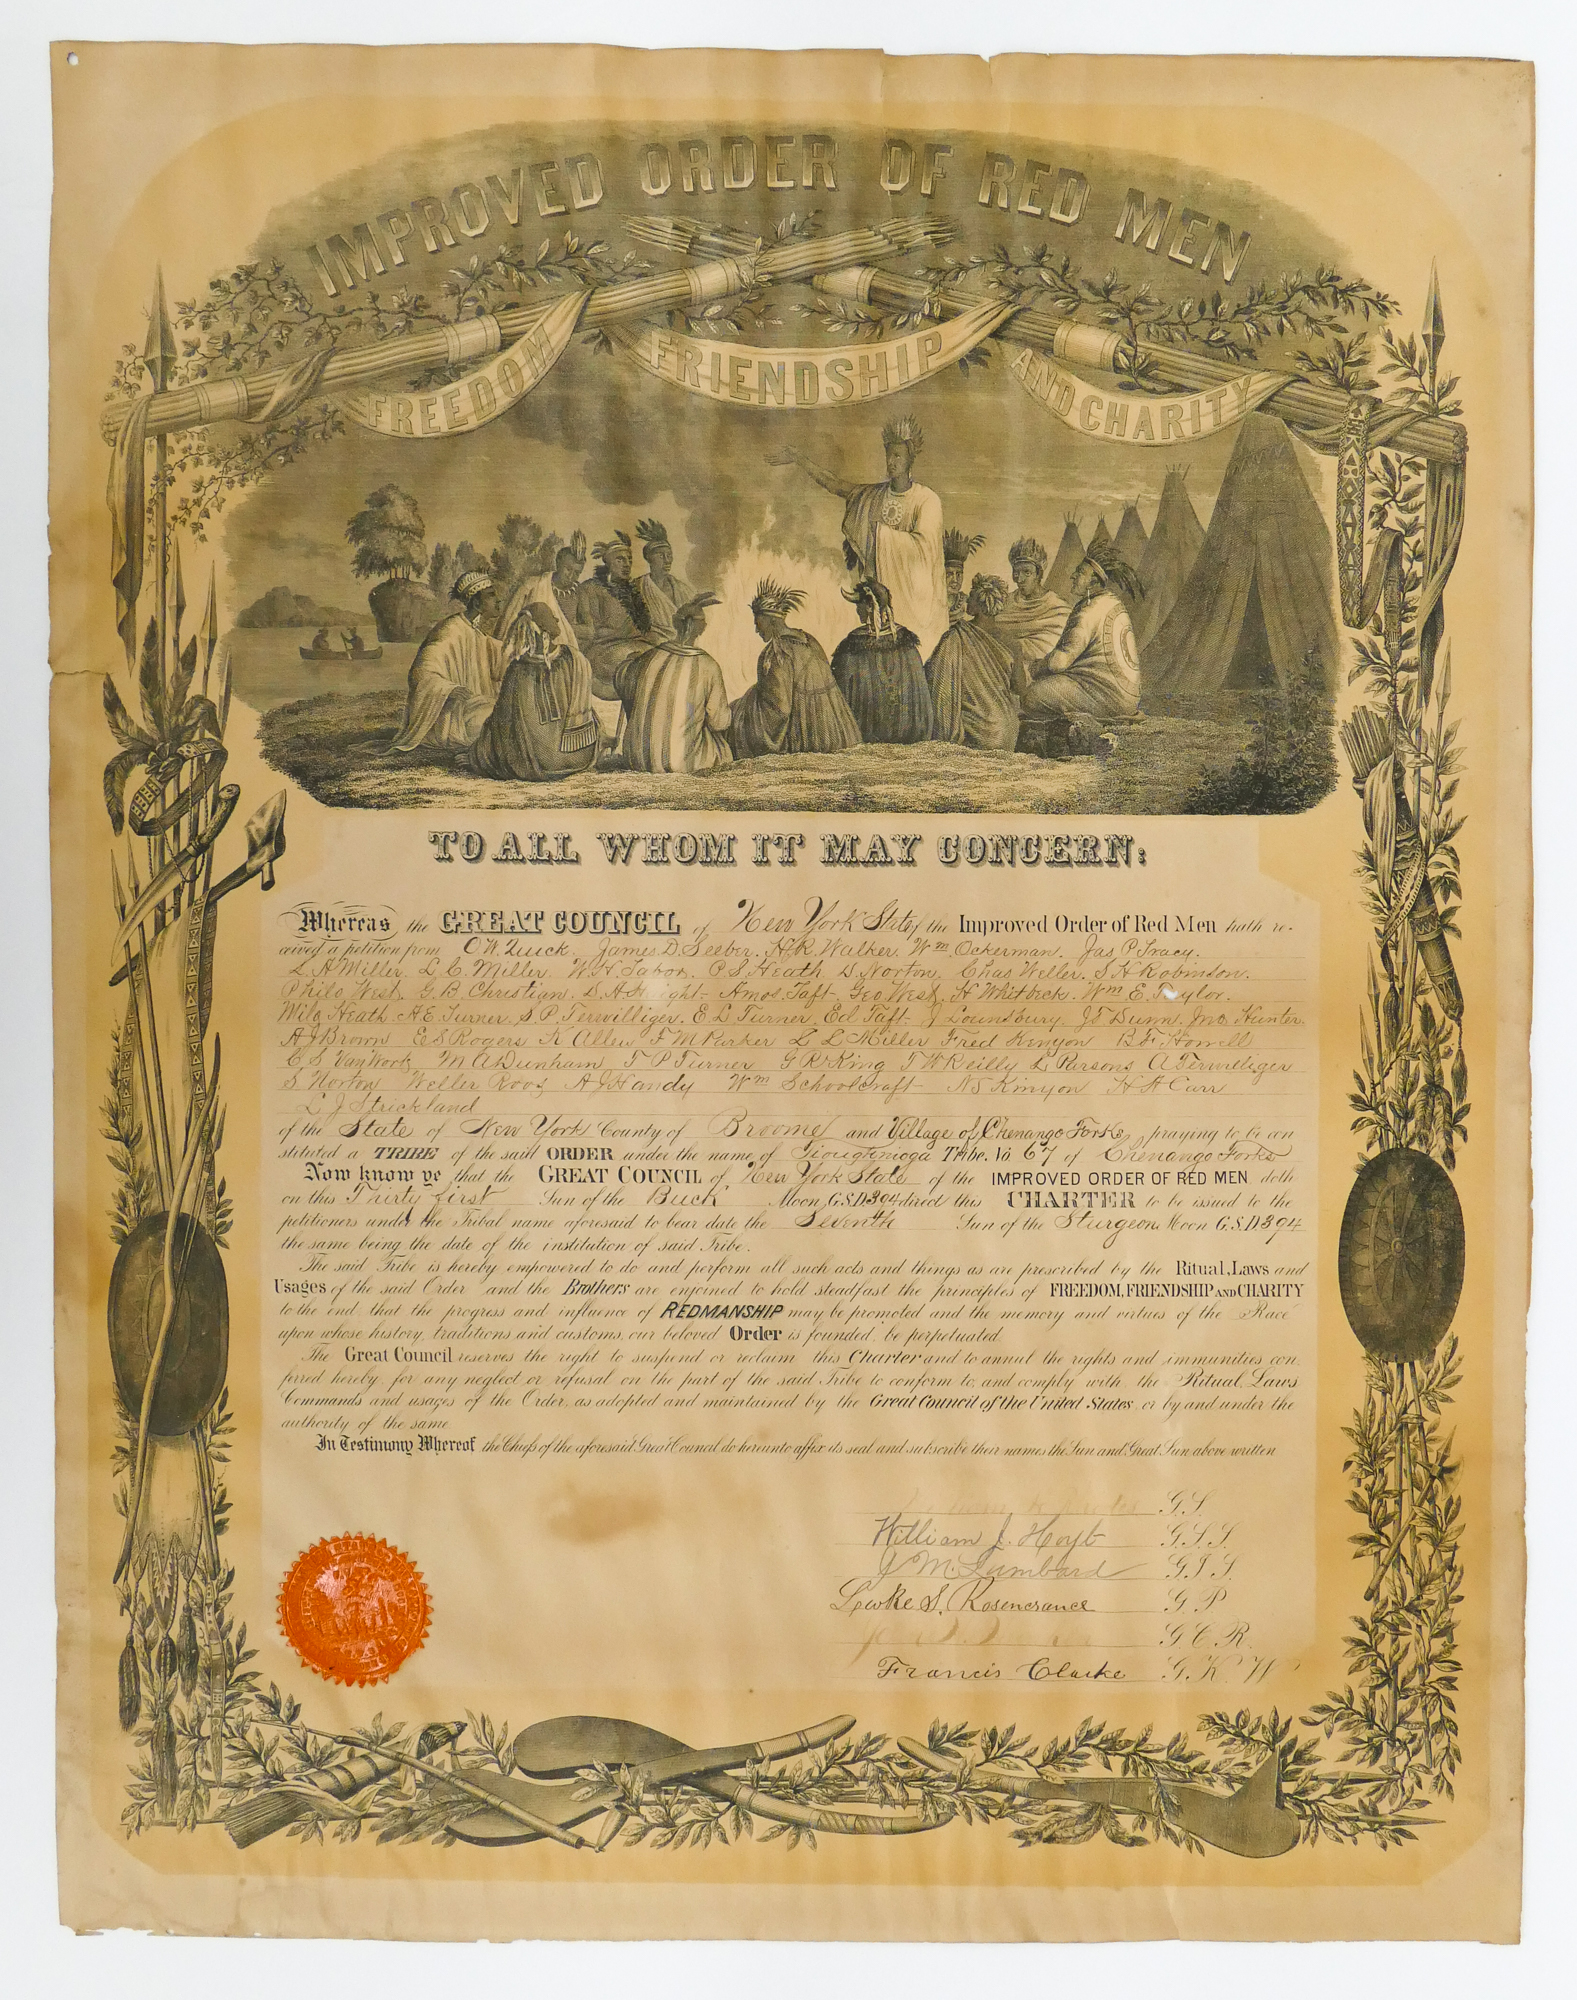 IMPROVED ORDER OF RED MEN
FREEDOM FRIENDSHIP AND CHARITY
TO ALL WHOM IT MAY CONCERN:
Whereas the GREAT COUNCIL of New York State of the Improved Order of Red Men hath re-
ceived a petition from O.W. Quick. James D. Seeber. H.R. Walker. Wm Ockerman. Jas P. Tracy.
L. A. Miller. L. C. Miller. W. H. Tabor. P. S. Heath. D. Norton. Chas Weller. S. H. Robinson.
Philo West. G. B. Christian. Amos Taft. Geo West. H Whitbeck. Wm E. Taylor.
Milo Heath. A. E. Turner. S. P. Terwilliger. E L Turner. Ed Taft. J Lounsbury. J. T. Dunn. Jno. Hunter.
A J Brown E S Rogers K Allen F M Parker L L Miller Fred Kenyon B. F. Howell
C. S. Van Work M A Dunham T P Turner G R King T W Reilly L Parsons A Terwilliger
S. Norton Weller Roos A J Handy Wm Schoolcraft N S Kinyon H A Carr
L J Strickland
of the State of New York County of Broome and Village of Chenango Forks praying to be in
stituted a TRIBE of the said ORDER under the name of Tioughnioga Tribe. No 67 of Chenango Forks
Now know ye that the GREAT COUNCIL of New York State of the IMPROVED ORDER OF RED MEN doth
on this Thirty first Sun of the Buck Moon, G.S.D. 394 direct this CHARTER to be issued to the
petitioners under the Tribal name aforesaid to bear date the Seventh Sun of the Sturgeon Moon G.S.D. 394
the same being the date of the institution of said Tribe.
The said Tribe is hereby empowered to do and perform all such acts and things as are prescribed by the Ritual, Laws and
Usages of the said Order and the Brothers are enjoined to hold steadfast the principles of FREEDOM, FRIENDSHIP AND CHARITY
to the end that the progress and influence of REDMANSHIP may be promoted and the memory and virtues of the Race
upon whose history, traditions and customs, our beloved Order is founded, be perpetuated.
The Great Council reserves the right to suspend or reclaim this Charter and to annul the rights and immunities con
ferred hereby, for any neglect or refusal on the part of the said Tribe to conform to, and comply with, the Ritual, Laws
Commands and usages of the Order, as adopted and maintained by the Great Council of the United States, or by and under the
authority of the same.
In Testimony Whereof the Chiefs of the aforesaid Great Council do hereunto affix its seal and subscribe their names the Sun and Great Sun above written
G.S.
William J. Hoyt G.S.S.
J M. Lombard G.J.S.
Lewke S. Rosencrance G. P.
G. C. R.
Francis Clarke G. K. W